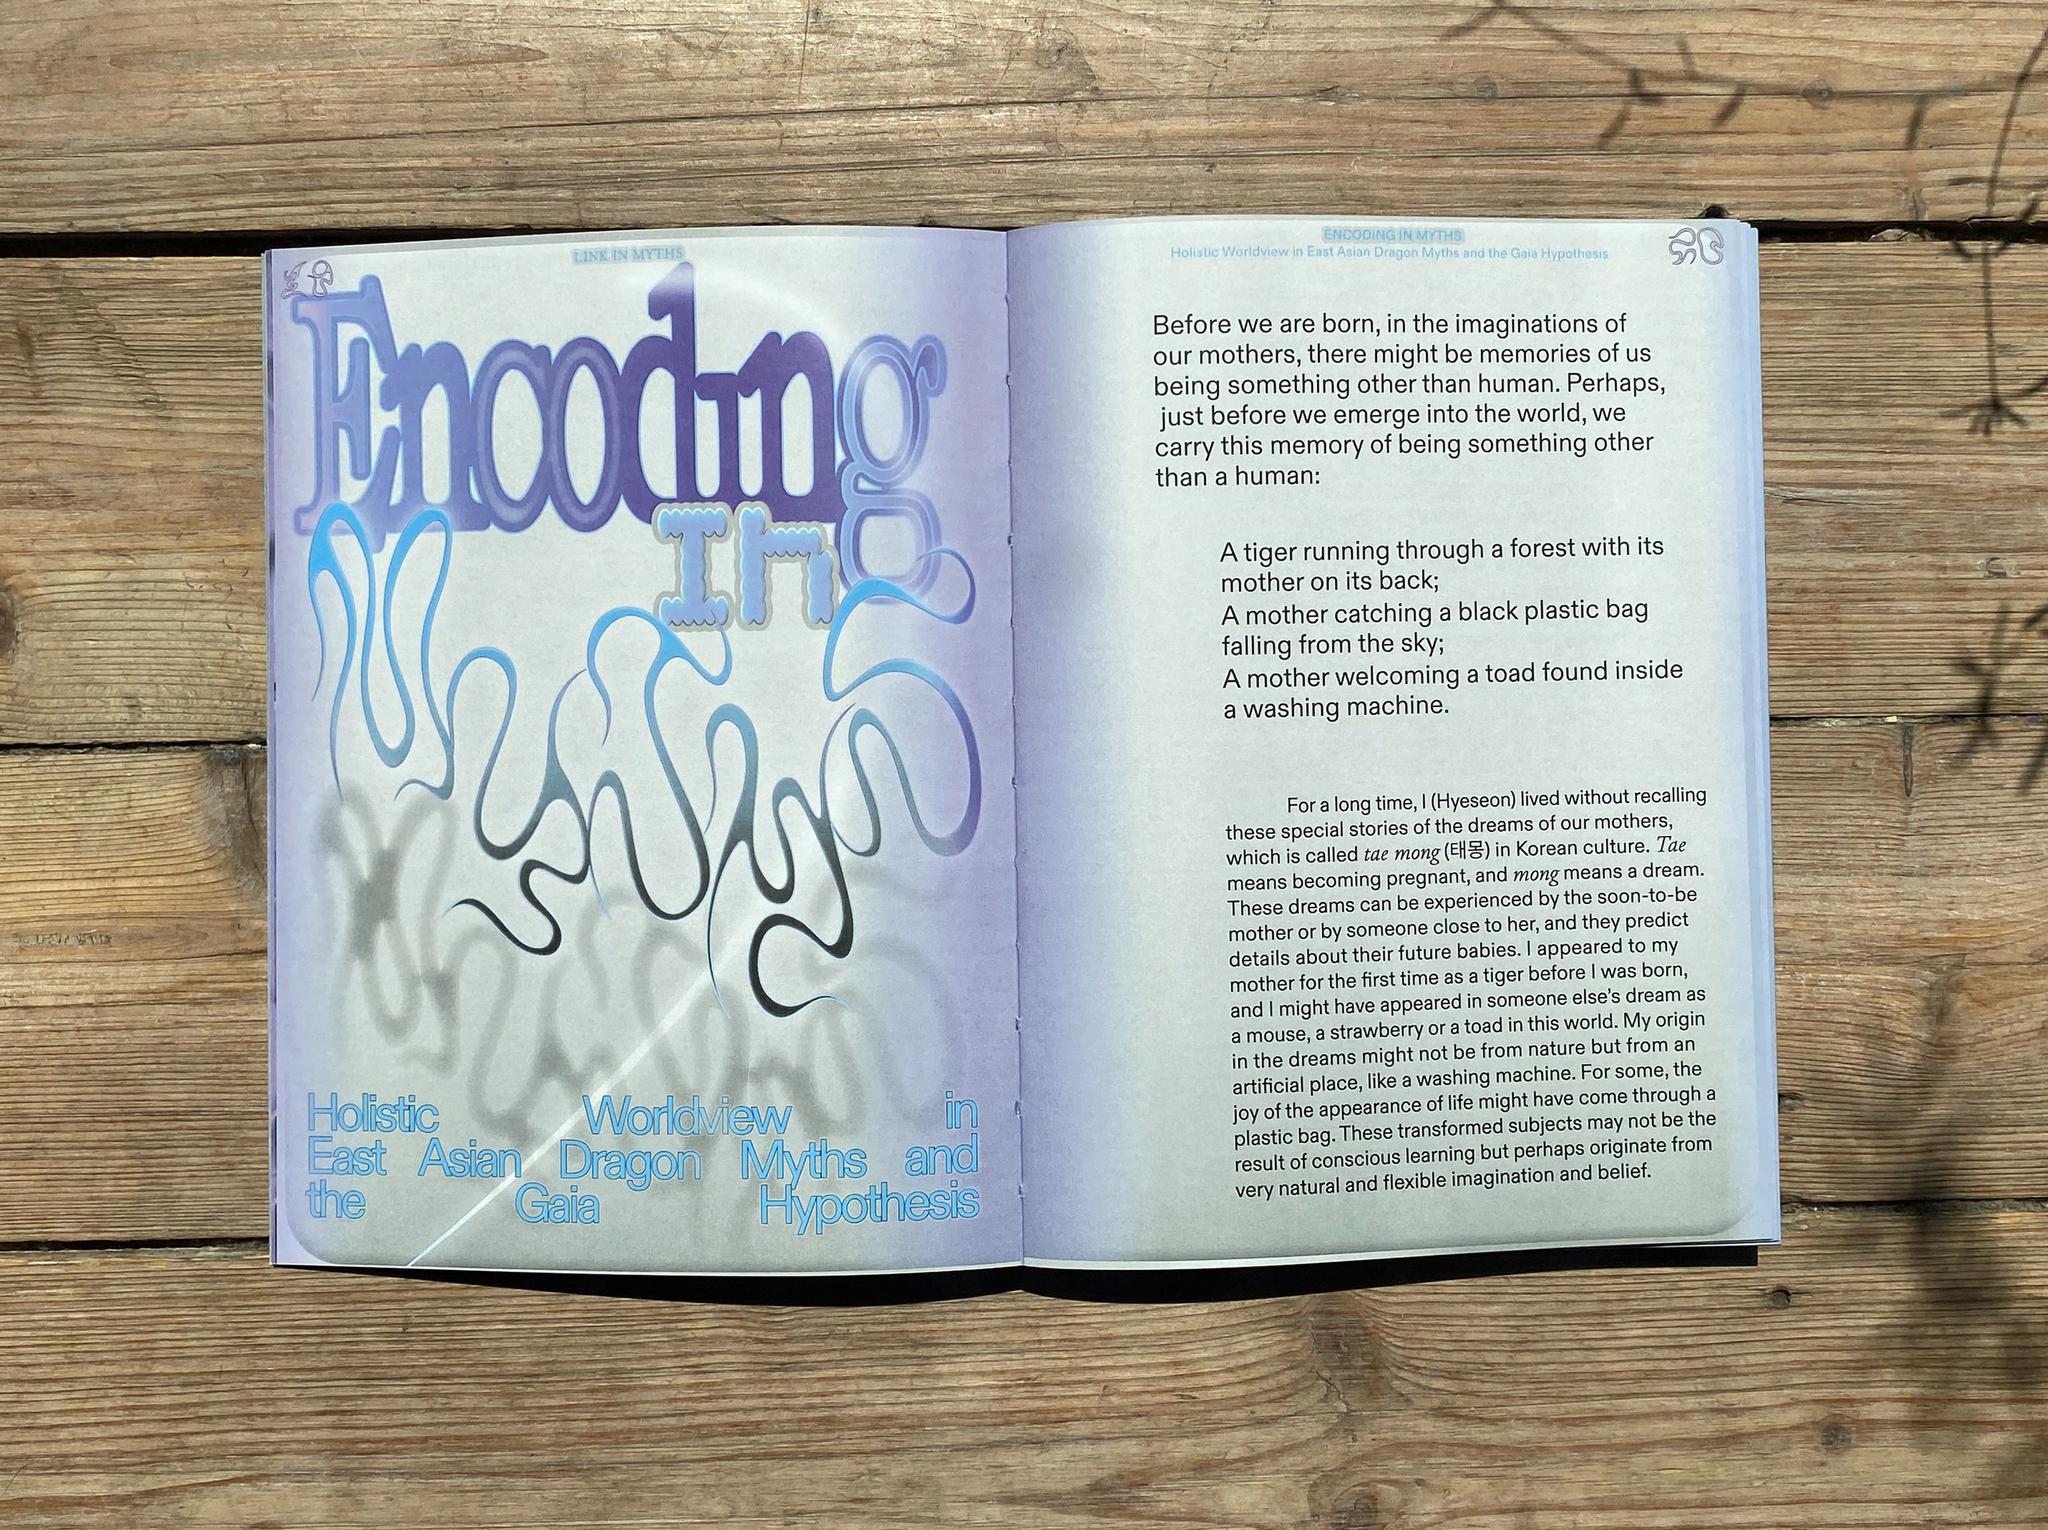 LINK IN MYTHS
Encoding
In
Myths
Holistic Worldview in
East Asian Dragon Myths and
the Gaia Hypothesis
ENCODING IN MYTHS
Holistic Worldview in East Asian Dragon Myths and the Gaia Hypothesis
Before we are born, in the imaginations of
our mothers, there might be memories of us
being something other than human. Perhaps,
just before we emerge into the world, we
carry this memory of being something other
than a human:
A tiger running through a forest with its
mother on its back;
A mother catching a black plastic bag
falling from the sky;
A mother welcoming a toad found inside
a washing machine.
For a long time, I (Hyeseon) lived without recalling
these special stories of the dreams of our mothers,
which is called tae mong (태몽) in Korean culture. Tae
means becoming pregnant, and mong means a dream.
These dreams can be experienced by the soon-to-be
mother or by someone close to her, and they predict
details about their future babies. I appeared to my
mother for the first time as a tiger before I was born,
and I might have appeared in someone else's dream as
a mouse, a strawberry or a toad in this world. My origin
in the dreams might not be from nature but from an
artificial place, like a washing machine. For some, the
joy of the appearance of life might have come through a
plastic bag. These transformed subjects may not be the
result of conscious learning but perhaps originate from
very natural and flexible imagination and belief.